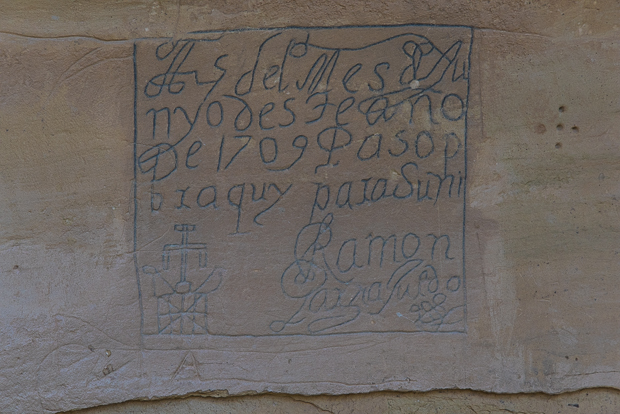 A 5 del Mes de Ju
nyo deste año
De 1709 Paso p
or aquy para Suñi
Ramon
Garzia Jurdo
A